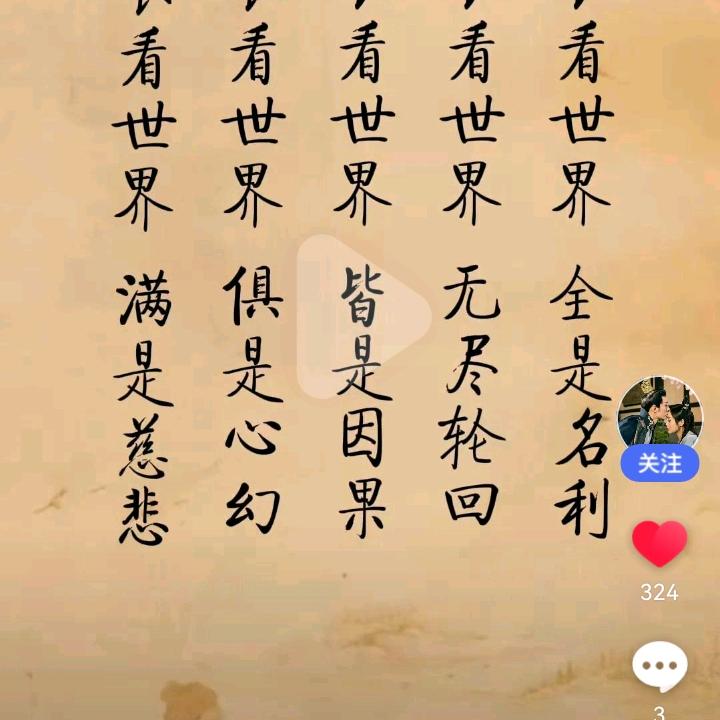 看世界 全是名利
看世界 无尽轮回
看世界 皆是因果
看世界 俱是心幻
看世界 满是慈悲
关注
324
3